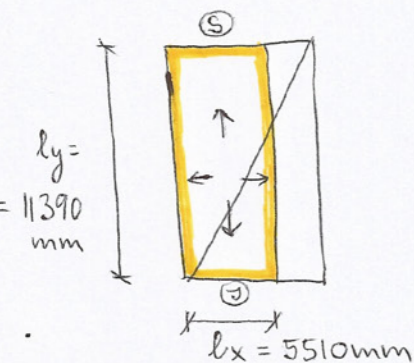 S
ly =
= 11390
mm
J
lx = 5510mm